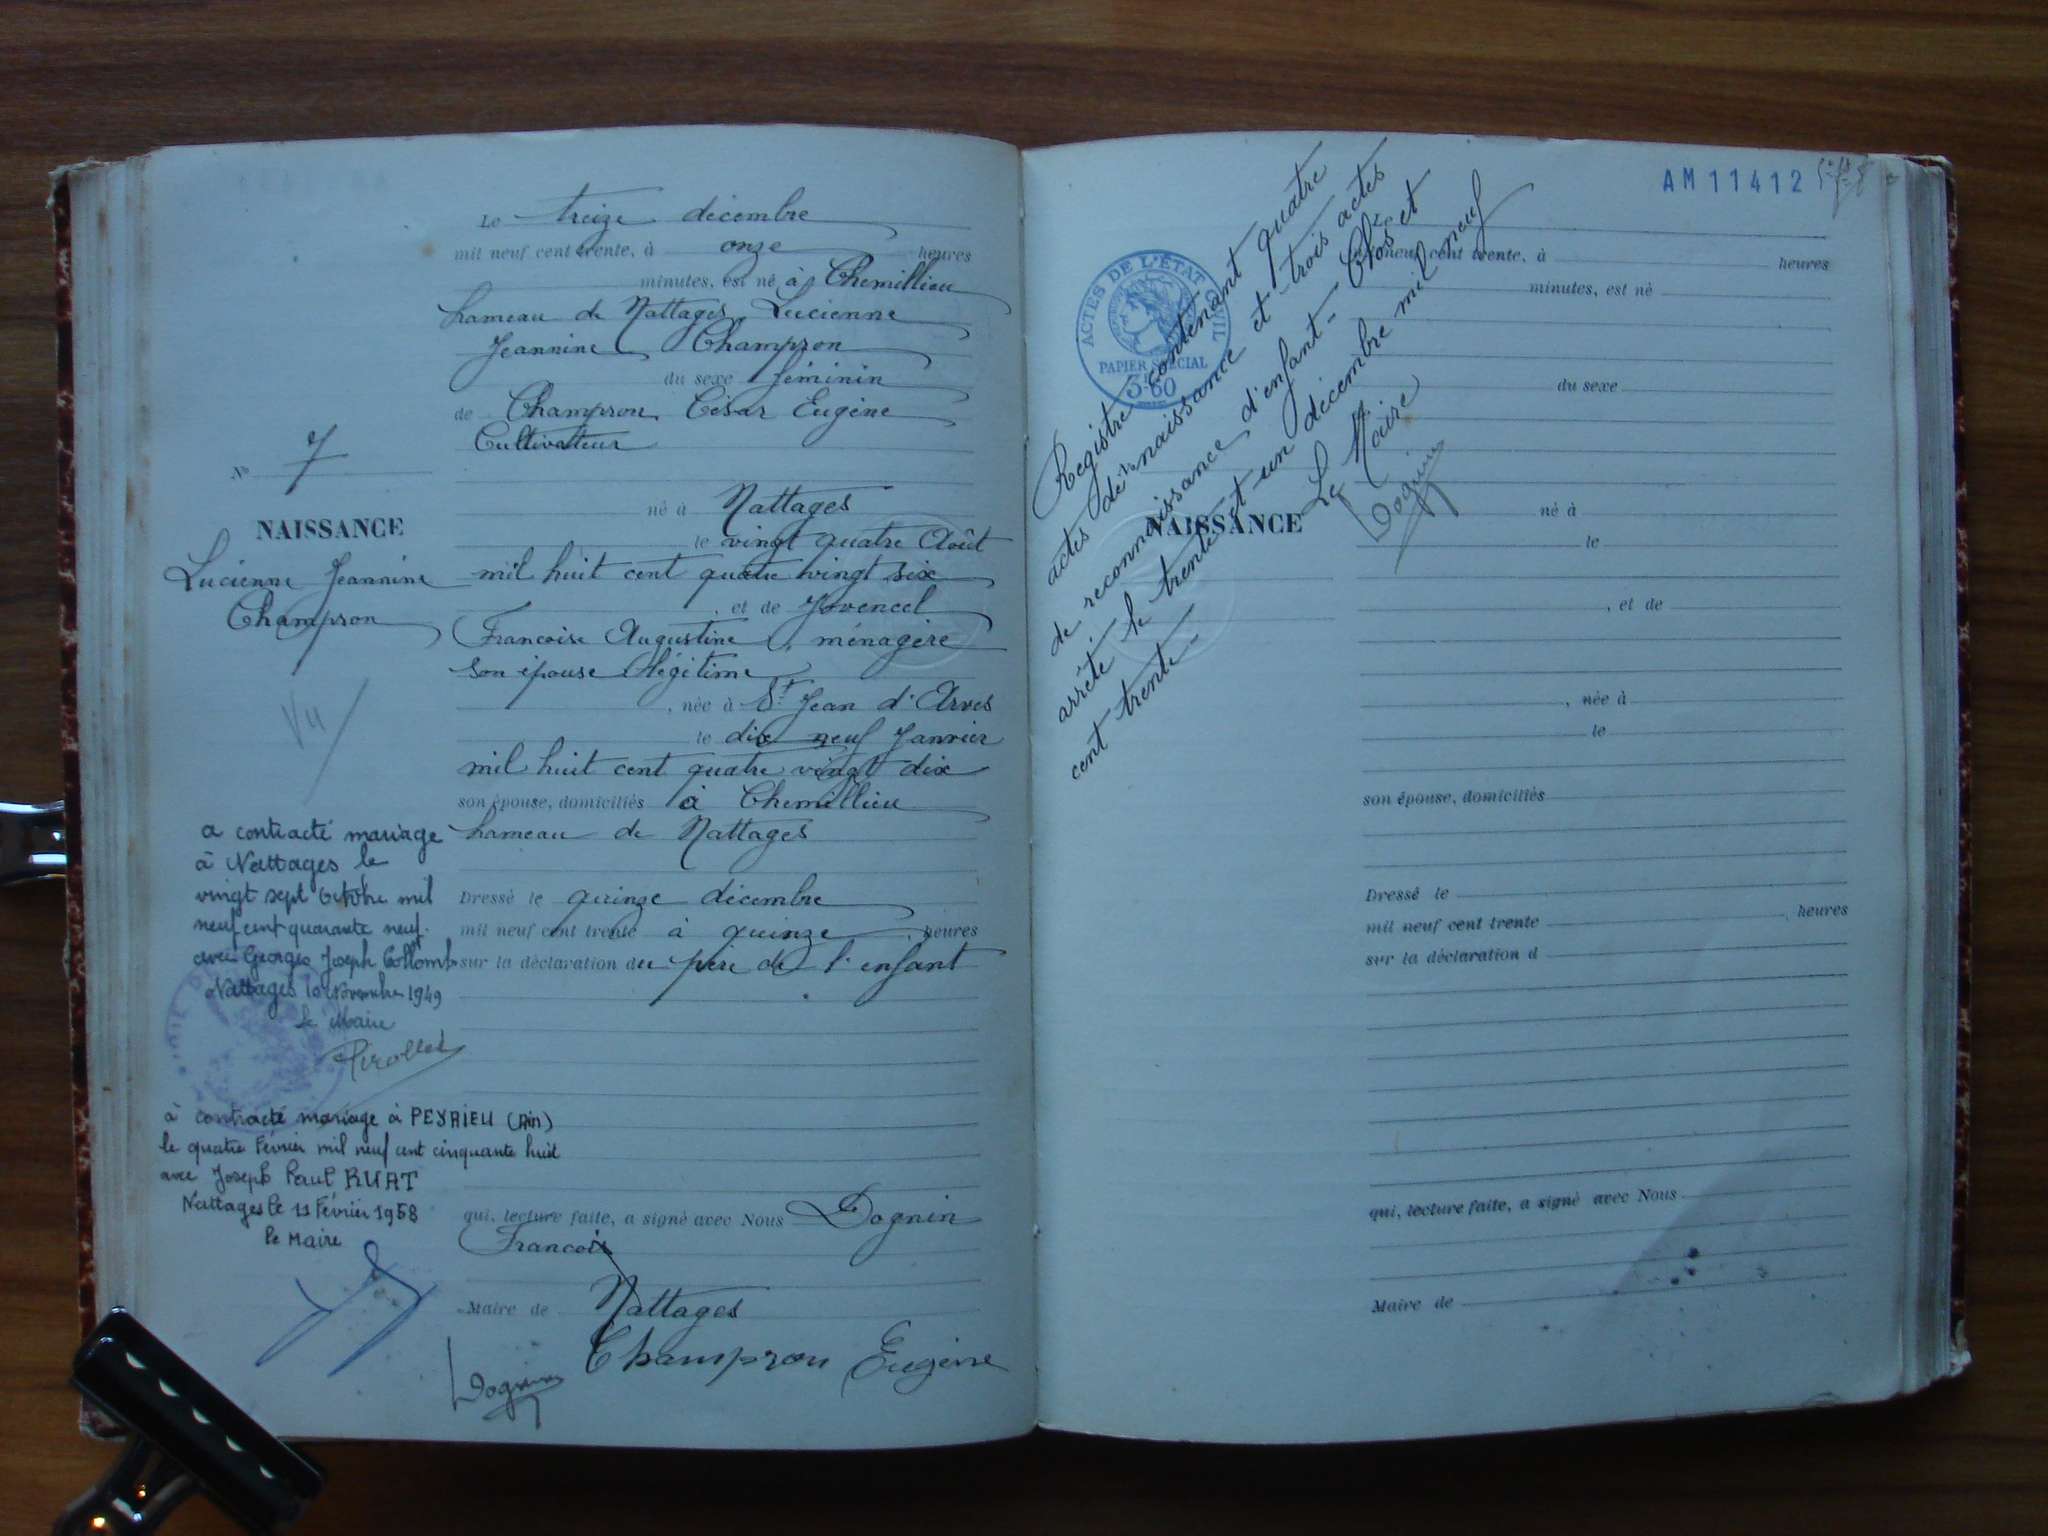 Le treize décembre
mil neuf cent trente, à onze heures
minutes, est né à Chemillieu
hameau de Nattages, Lucienne
Jeannine Champron
du sexe féminin
de Champron César Eugène
Cultivateur
né à Nattages
le vingt quatre Août
mil huit cent quatre vingt six
, et de Jovencel
Francoise Augustine, ménagère
son épouse légitime
, née à St Jean d'Arves
le dix neuf Janvier
mil huit cent quatre vingt dix
son épouse, domiciliés à Chemillieu
hameau de Nattages
Dressé le quinze décembre
mil neuf cent trente à quinze heures
sur la déclaration du père de l'enfant
qui, lecture faite, a signé avec Nous Dognin
Francois
Maire de Nattages
Champron Eugène
Dognin
No 7
NAISSANCE
Lucienne Jeannine
Champron
Vu
a contracté mariage
à Nattages le
vingt sept Octobre mil
neuf cent quarante neuf
avec Georges Joseph Collomb
Nattages 10 Novembre 1949
Le Maire
à contracté mariage à PEYRIEU (Ain)
le quatre Février mil neuf cent cinquante huit
avec Joseph Paul RUAT
Nattages le 11 Février 1958
le Maire
AM11412
ACTES DE L'ÉTAT CIVIL
PAPIER SPÉCIAL
3F60
Registre contenant quatre
actes de naissance et trois actes
de reconnaissance d'enfant - Clos et
arrêté le trente et un décembre mil neuf
cent trente -
Le Maire
Dognin
Le
mil neuf cent trente, à heures
minutes, est né
du sexe
NAISSANCE
né à
le
, et de
, née à
le
son épouse, domiciliés
Dressé le
mil neuf cent trente , heures
sur la déclaration d
qui, lecture faite, a signé avec Nous
Maire de